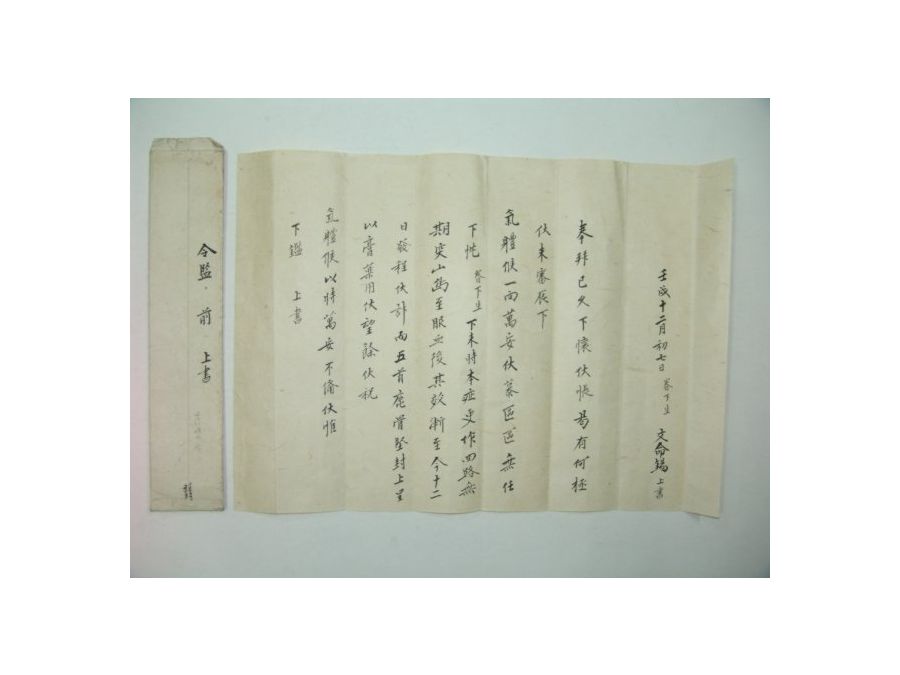 壬戌十二月初七日 眷下生 文命錫 上書
奉拜已久下懷伏悵曷有何極
伏未審辰下
氣體候一向萬安伏慕區區無任
下忱 眷下生 下來時本症更作四路無
期 山 至服 後其效漸至今十二
日發程伏計而五首鹿骨堅封上呈
以膏藥用伏望餘伏祝
氣體候以時萬安不備伏惟
下鑑 上書
令監 前 上書
謹封